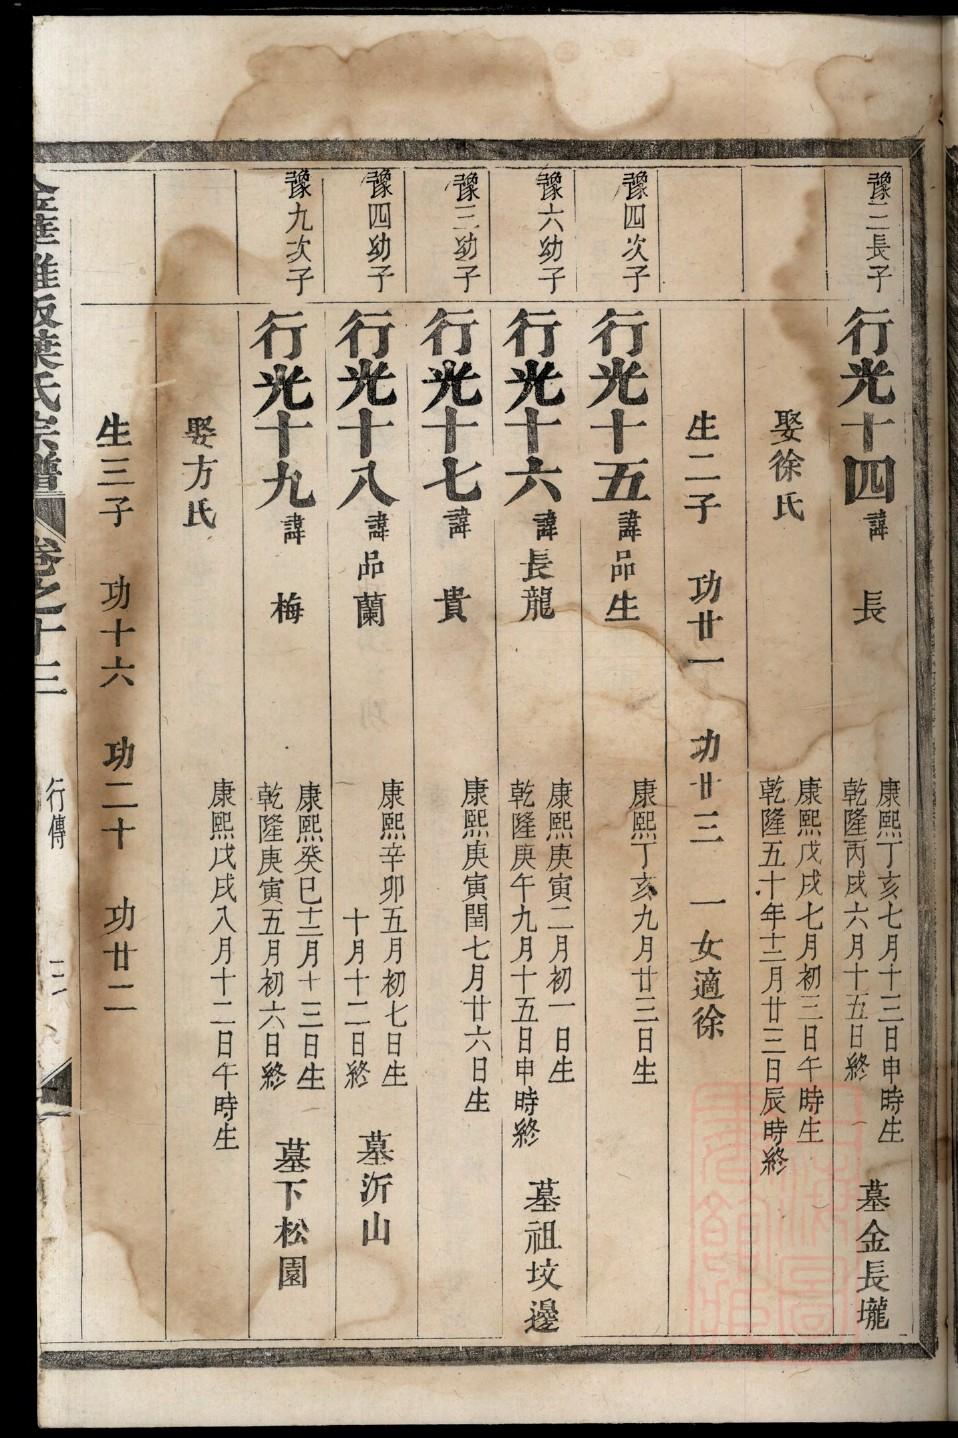 豫二長子
行光十四 諱 長 康熙丁亥七月十三日申時生 墓金長壠
乾隆丙戌六月十五日終
娶徐氏 康熙戊戌七月初三日午時生
乾隆五十年十二月廿三日辰時終
生二子 功廿一 功廿三 一女適徐
豫四次子
行光十五 諱品生 康熙丁亥九月廿三日生
豫六幼子
行光十六 諱長龍 康熙庚寅二月初一日生
乾隆庚午九月十五日申時終 墓祖坟邊
豫三幼子
行光十七 諱 貴 康熙庚寅閏七月廿六日生
豫四幼子
行光十八 諱品蘭 康熙辛卯五月初七日生
十月十二日終 墓沂山
豫九次子
行光十九 諱 梅 康熙癸巳十二月十三日生
乾隆庚寅五月初六日終 墓下松園
娶方氏 康熙戊戌八月十二日午時生
生三子 功十六 功二十 功廿二
葉氏宗譜 卷之十三 行傳